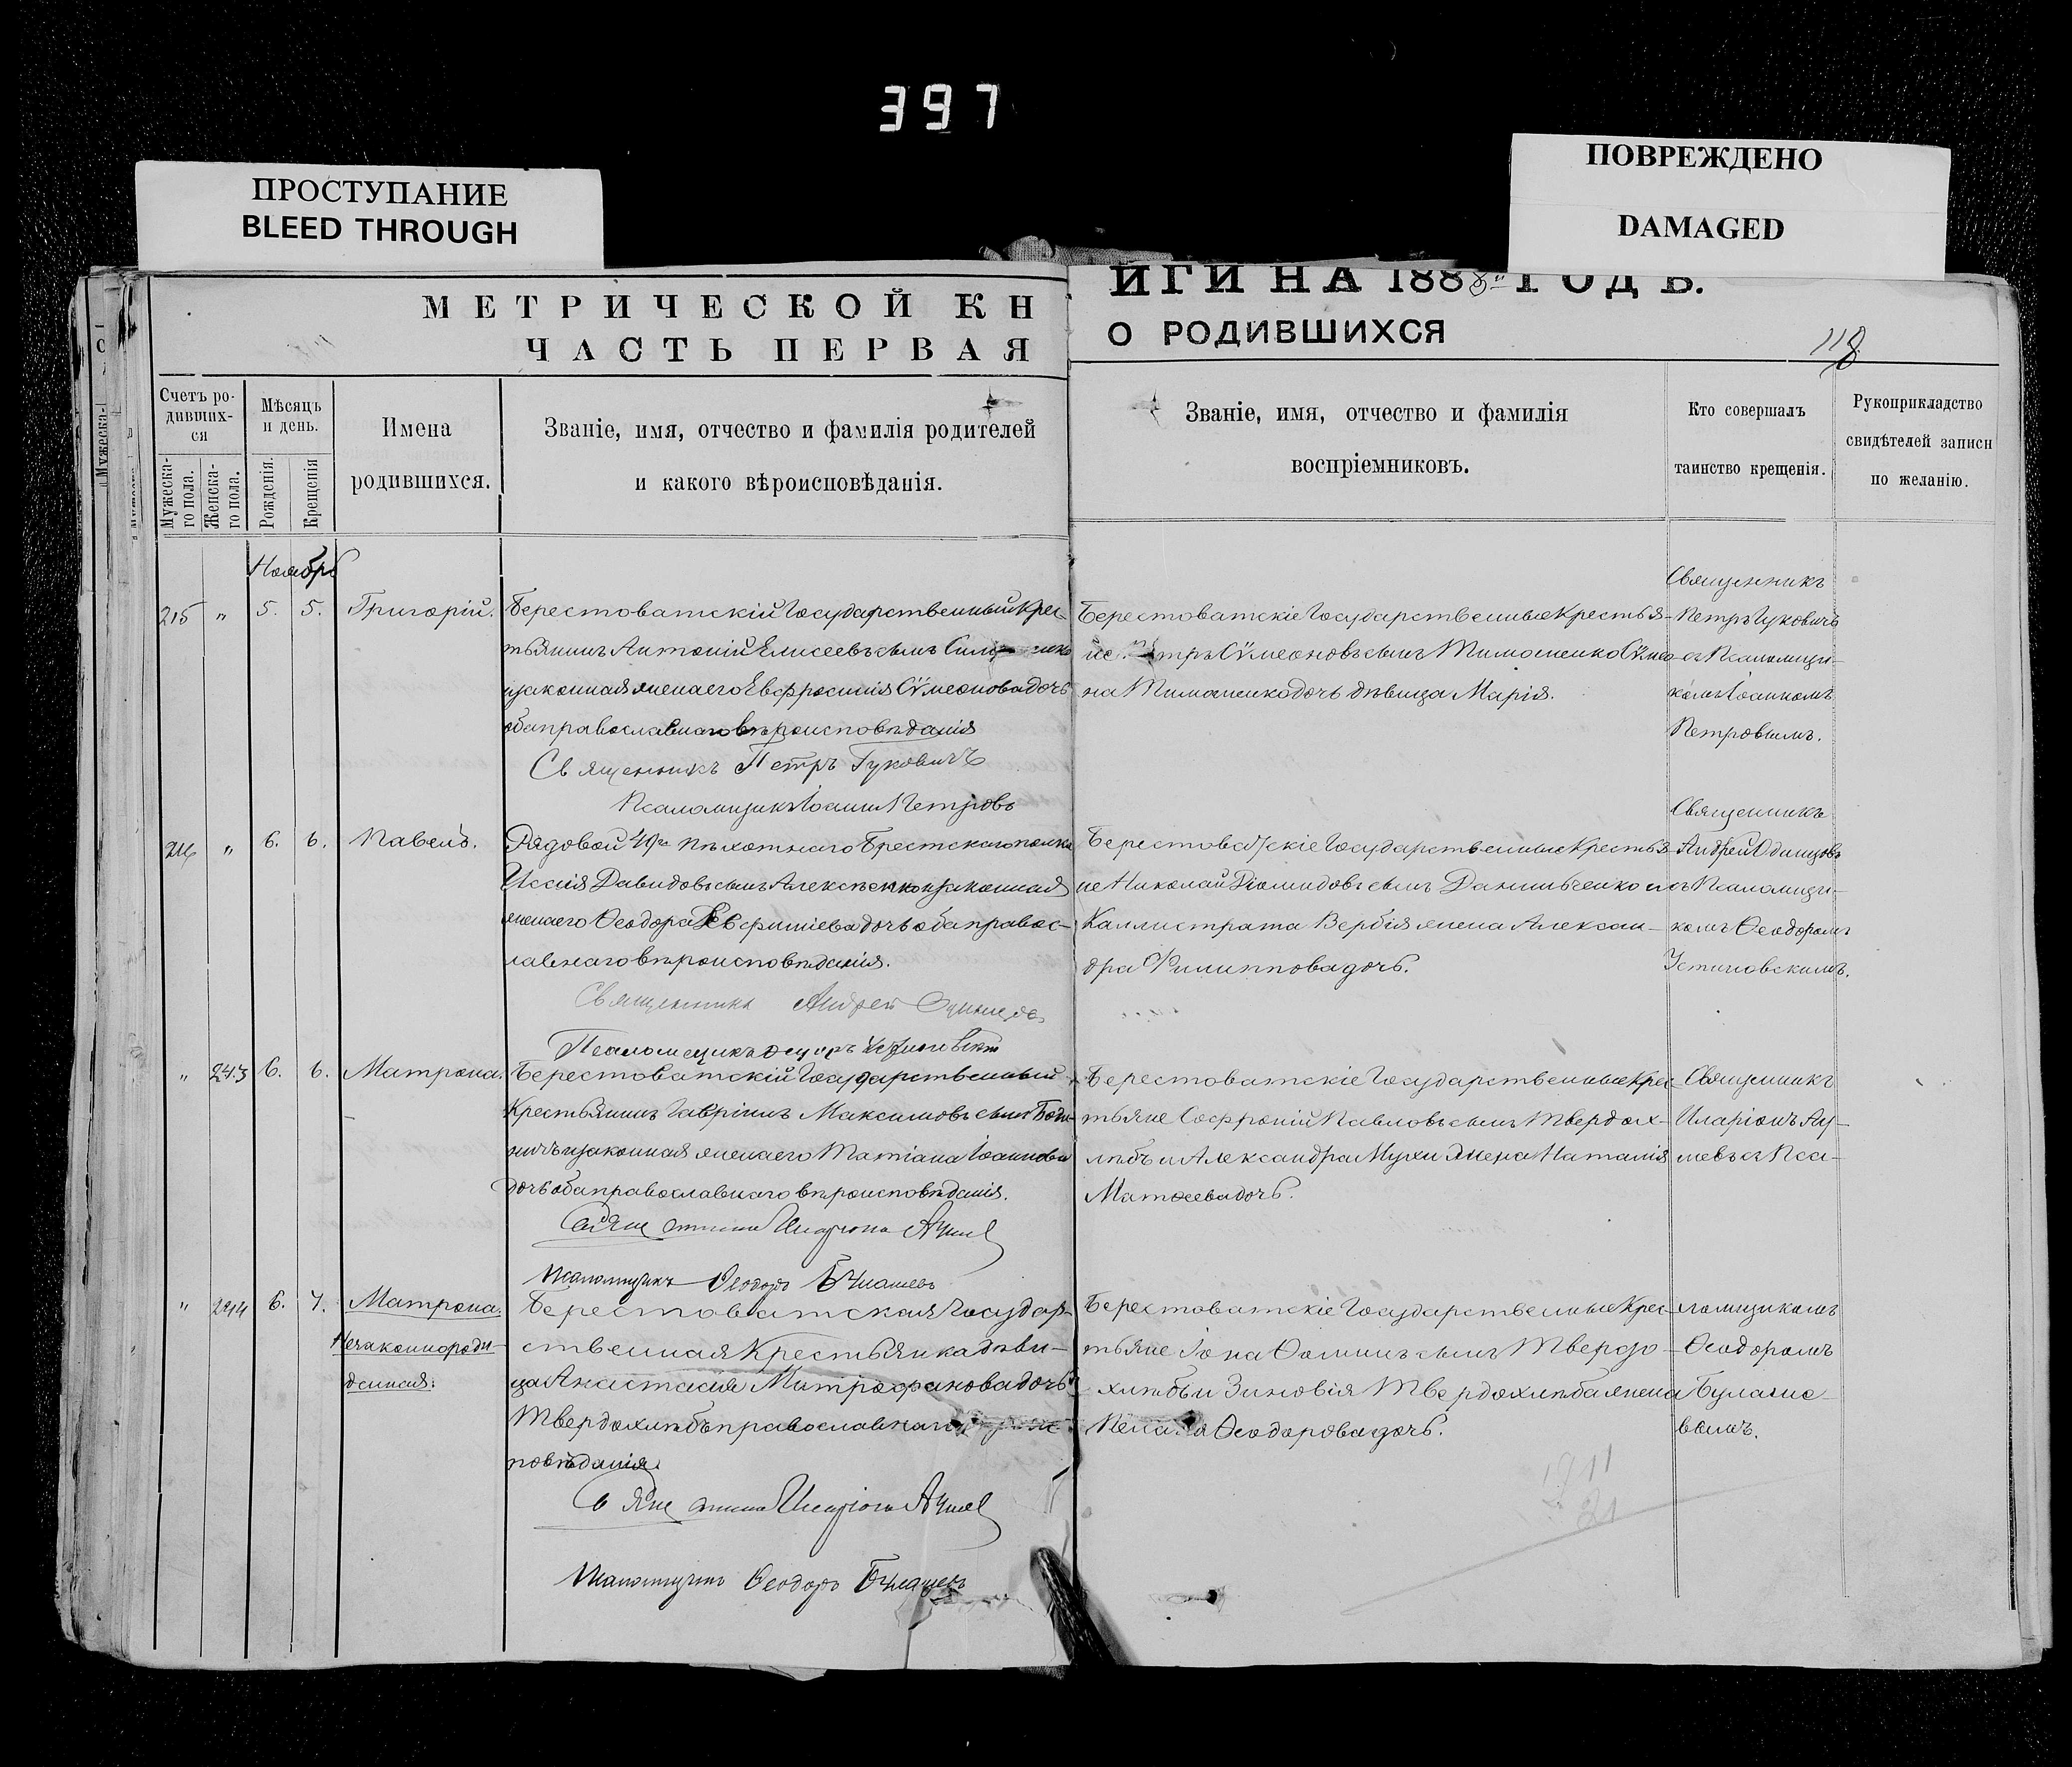 397
ПРОСТУПАНИЕ
BLEED THROUGH
ПОВРЕЖДЕНО
DAMAGED
МЕТРИЧЕСКОЙ КН
ЧАСТЬ ПЕРВАЯ
ИГИ НА 1888 ГОДЪ.
О РОДИВШИХСЯ
118
Счетъ ро-
дивших-
ся
Мужеска-
го пола.
Женска-
го пола.
Мѣсяцъ
и день.
Рожденія.
Крещенія
Имена
родившихся.
Званіе, имя, отчество и фамилія родителей
и какого вѣроисповѣданія.
Званіе, имя, отчество и фамилія
воспріемниковъ.
Кто совершалъ
таинство крещенія.
Рукоприкладство
свидѣтелей записи
по желанію.
Ноябрь
215 " 5. 5. Григорій.
Берестоватскій Государственный Крес-
тьянинъ Антоній Елисеевъ сынъ
и законная жена его Евфросинія Сѵмеонова дочь
оба православнаго вѣроисповѣданія
Священникъ Петръ Гуковичъ
Псаломщикъ Іоаннъ Петровъ
Берестоватскіе Государственные Крестья-
не Петръ Сѵмеоновъ сынъ Тимошенко Сѵмео-
на Тимошенко дочь дѣвица Марія.
Священникъ
Петръ Гуковичъ
съ Псаломщи-
комъ Іоанномъ
Петровымъ.
216 " 6. 6. Павелъ.
Рядовой 49го Пѣхотнаго Брестскаго полка
Исаія Давидовъ сынъ Алексѣенко и законная
жена его Ѳеодора Евфиміева дочь оба правос-
лавнаго вѣроисповѣданія.
Священникъ Андрей Одинцовъ
Псаломщикъ Ѳеодоръ Устиновскій
Берестоватскіе Государственные Крестья-
не Николай Діомидовъ сынъ Данильченко и
Каллистрата Вербія жена Алексан-
дра Филиппова дочь.
Священникъ
Андрей Одинцовъ
съ Псаломщи-
комъ Ѳеодоромъ
Устиновскимъ.
" 243 6. 6. Матрона.
Берестоватскій Государственный
Крестьянинъ Гавріилъ Максимовъ сынъ
и законная жена его Татіана Іоаннова
дочь оба православнаго вѣроисповѣданія.
Священникъ Иларіонъ
Псаломщикъ Ѳеодоръ Булашевъ
Берестоватскіе Государственные Крес-
тьяне Софроній Павловъ сынъ Твердох-
лѣбъ и Александра Мухи жена Наталія
Матѳеева дочь.
Священникъ
Иларіонъ
съ Пса-
" 244 6. 7. Матрона.
Незаконнорож-
денная.
Берестоватская Государ-
ственная Крестьянка дѣви-
ца Анастасія Митрофанова дочь
Твердохлѣбъ православнаго вѣроис-
повѣданія.
Священникъ Иларіонъ
Псаломщикъ Ѳеодоръ Булашевъ
Берестоватскіе Государственные Крес-
тьяне Іона Ѳоминъ сынъ Твердо-
хлѣбъ и Зиновія Твердохлѣба жена
Пелагія Ѳеодорова дочь.
ломщикомъ
Ѳеодоромъ
Булаше-
вымъ.